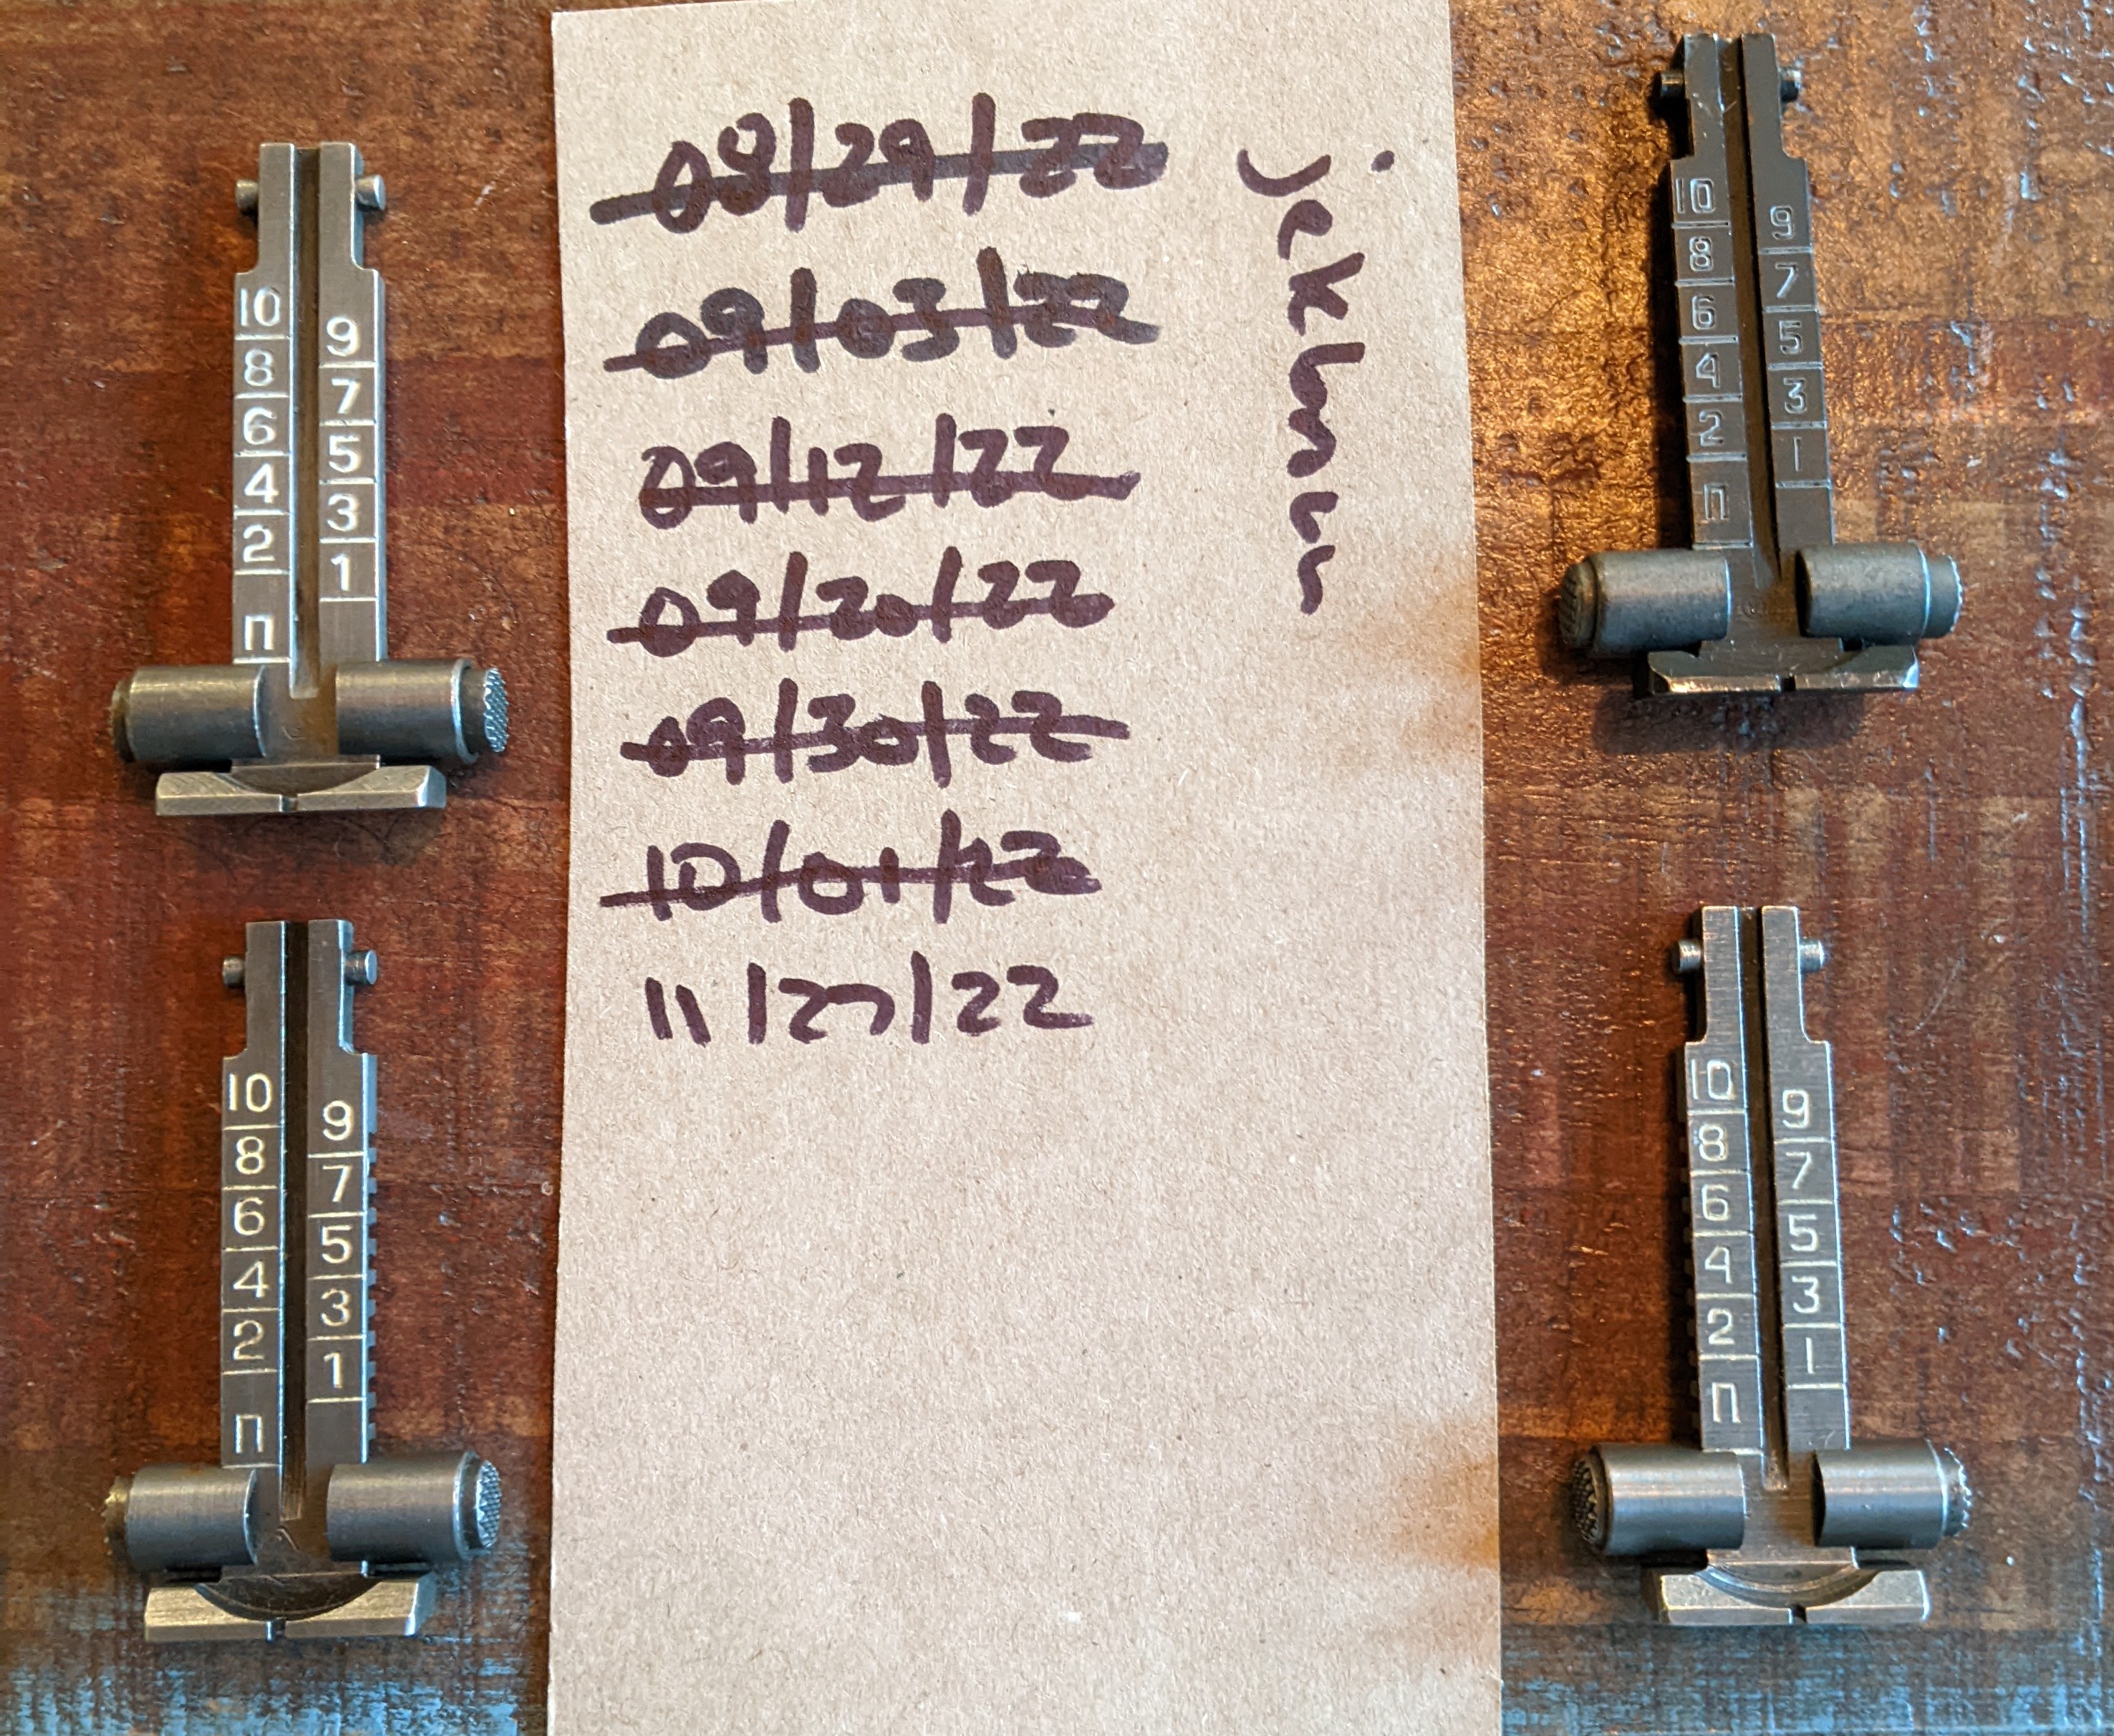 10
9
8
7
6
5
4
3
2
1
П
10
9
8
7
6
5
4
3
2
1
П
08/29/22
09/03/22
09/12/22
09/20/22
09/30/22
10/01/22
11/27/22
10
9
8
7
6
5
4
3
2
1
П
10
9
8
7
6
5
4
3
2
1
П